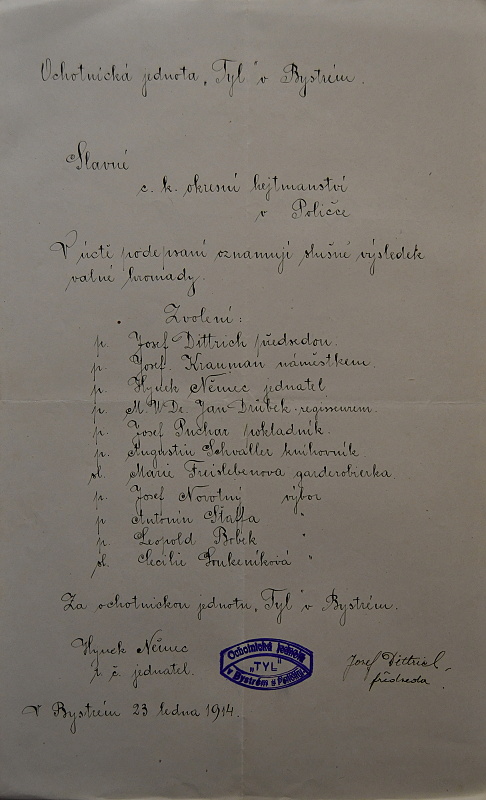 Ochotnická jednota „Tyl" v Bystrém.
Slavné
c. k. okresní hejtmanství
v Poličce
V úctě podepsaní oznamují slušně výsledek
valné hromady.
Zvoleni:
p. Josef Dittrich předsedou.
p. Josef Krauman náměstkem.
p. Hynek Němec jednatel
p. M.U.Dr. Jan Drübek regisseurem.
p. Josef Puchar pokladník.
p. Augustin Schvaller knihovník.
sl. Marie Freislebenova garderobierka.
p. Josef Novotný výbor
p. Antonín Štaffa "
p. Leopold Bobek "
sl. Cecilie Soukeníková "
Za ochotnickou jednotu „Tyl" v Bystrém.
Hynek Němec
t. č. jednatel.
Ochotnická jednota
„TYL"
v Bystrém u Poličky
Josef Dittrich
předseda.
V Bystrém 23 ledna 1914.